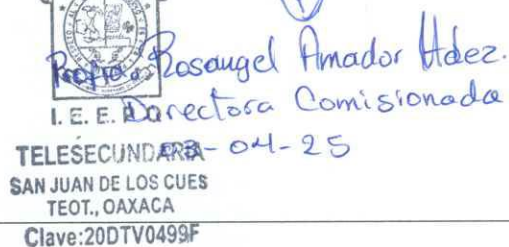 Profra. Rosangel Amador Hdez.
Directora Comisionada
I. E. E. P. O.
TELESECUNDARIA
03-04-25
SAN JUAN DE LOS CUES
TEOT., OAXACA
Clave:20DTV0499F